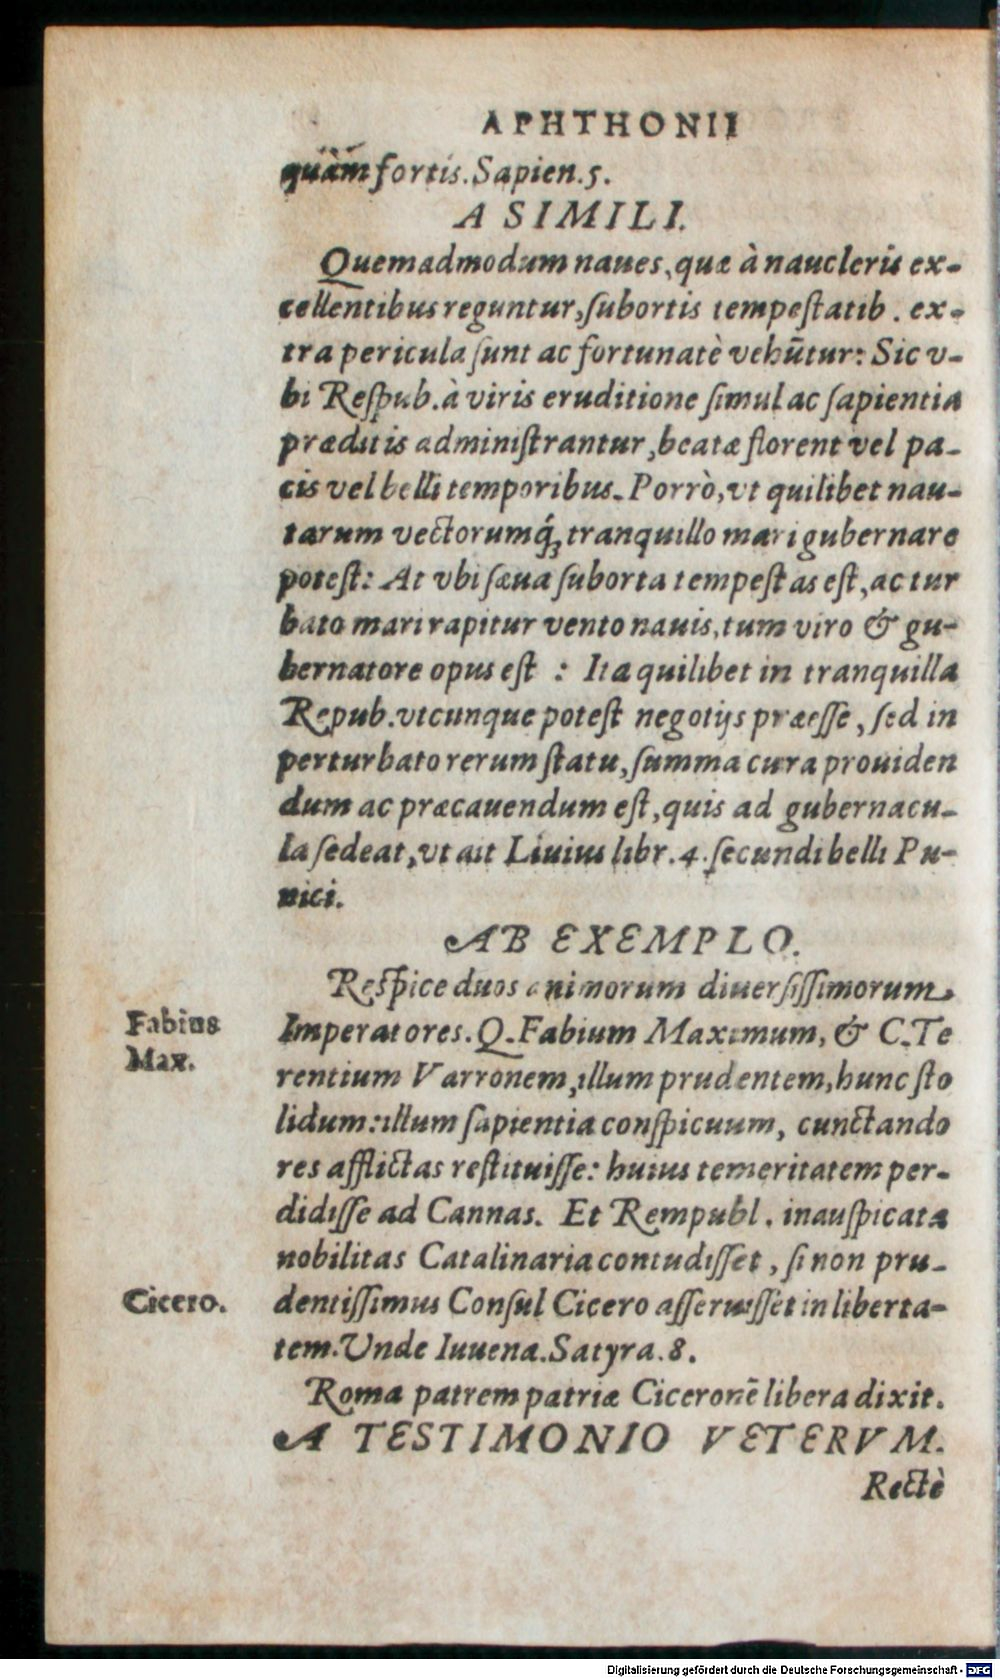 APHTHONII
quàm fortis. Sapien. 5.
A SIMILI.
Quemadmodum naues, quæ à naucleris ex-
cellentibus reguntur, ſubortis tempeſtatib. ex-
tra pericula ſunt ac fortunatè vehũtur: Sic v-
bi Reſpub. à viris eruditione ſimul ac ſapientia
præditis adminiſtrantur, beatæ florent vel pa-
cis vel belli temporibus. Porrò, vt quilibet nau-
tarum vectorumq́; tranquillo mari gubernare
poteſt: At vbi ſæua ſuborta tempeſtas eſt, ac tur
bato mari rapitur vento nauis, tum viro & gu-
bernatore opus eſt : Ita quilibet in tranquilla
Repub. vtcunque poteſt negotijs præeſſe, ſed in
perturbato rerum ſtatu, ſumma cura prouiden
dum ac præcauendum eſt, quis ad gubernacu-
la ſedeat, vt ait Liuius libr. 4. ſecundi belli Pu-
nici.
AB EXEMPLO.
Reſpice duos animorum diuerſiſſimorum
Fabius
Max.
Imperatores. Q. Fabium Maximum, & C. Te
rentium Varronem, illum prudentem, hunc ſto
lidum: illum ſapientia conſpicuum, cunctando
res afflictas reſtituiſſe: huius temeritatem per-
didiſſe ad Cannas. Et Rempubl. inauſpicata
nobilitas Catalinaria contudiſſet, ſi non pru-
Cicero.
dentiſſimus Conſul Cicero aſſeruiſſet in liberta-
tem. Unde Iuuena. Satyra. 8.
Roma patrem patriæ Ciceronẽ libera dixit.
A TESTIMONIO VETERVM.
Rectè
Digitalisierung gefördert durch die Deutsche Forschungsgemeinschaft - DFG